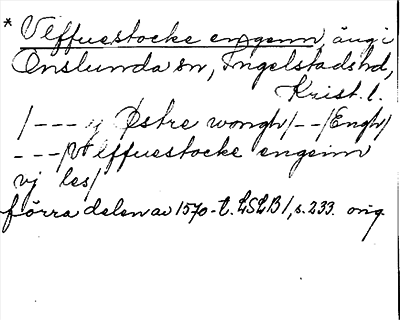 * Vlffuestocke engenn, äng i
Onslunda sn, Ingelstads hd,
Krist. l.
/--- y Østre wongh/--/Engh/
---/Vlffuestocke engeinn
vj les/
förra delen av 1570-t. LSLB 1, s. 233. orig.